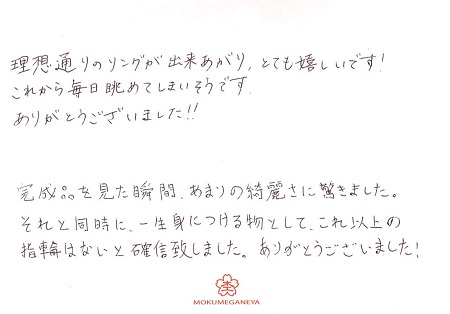 理想通りのリングが出来あがり、とても嬉しいです!
これから毎日眺めてしまいそうです.
ありがとうございました!!
完成品を見た瞬間、あまりの綺麗さに驚きました。
それと同時に、一生身につける物として、これ以上の
指輪はないと確信致しました。ありがとうございました!
MOKUMEGANEYA